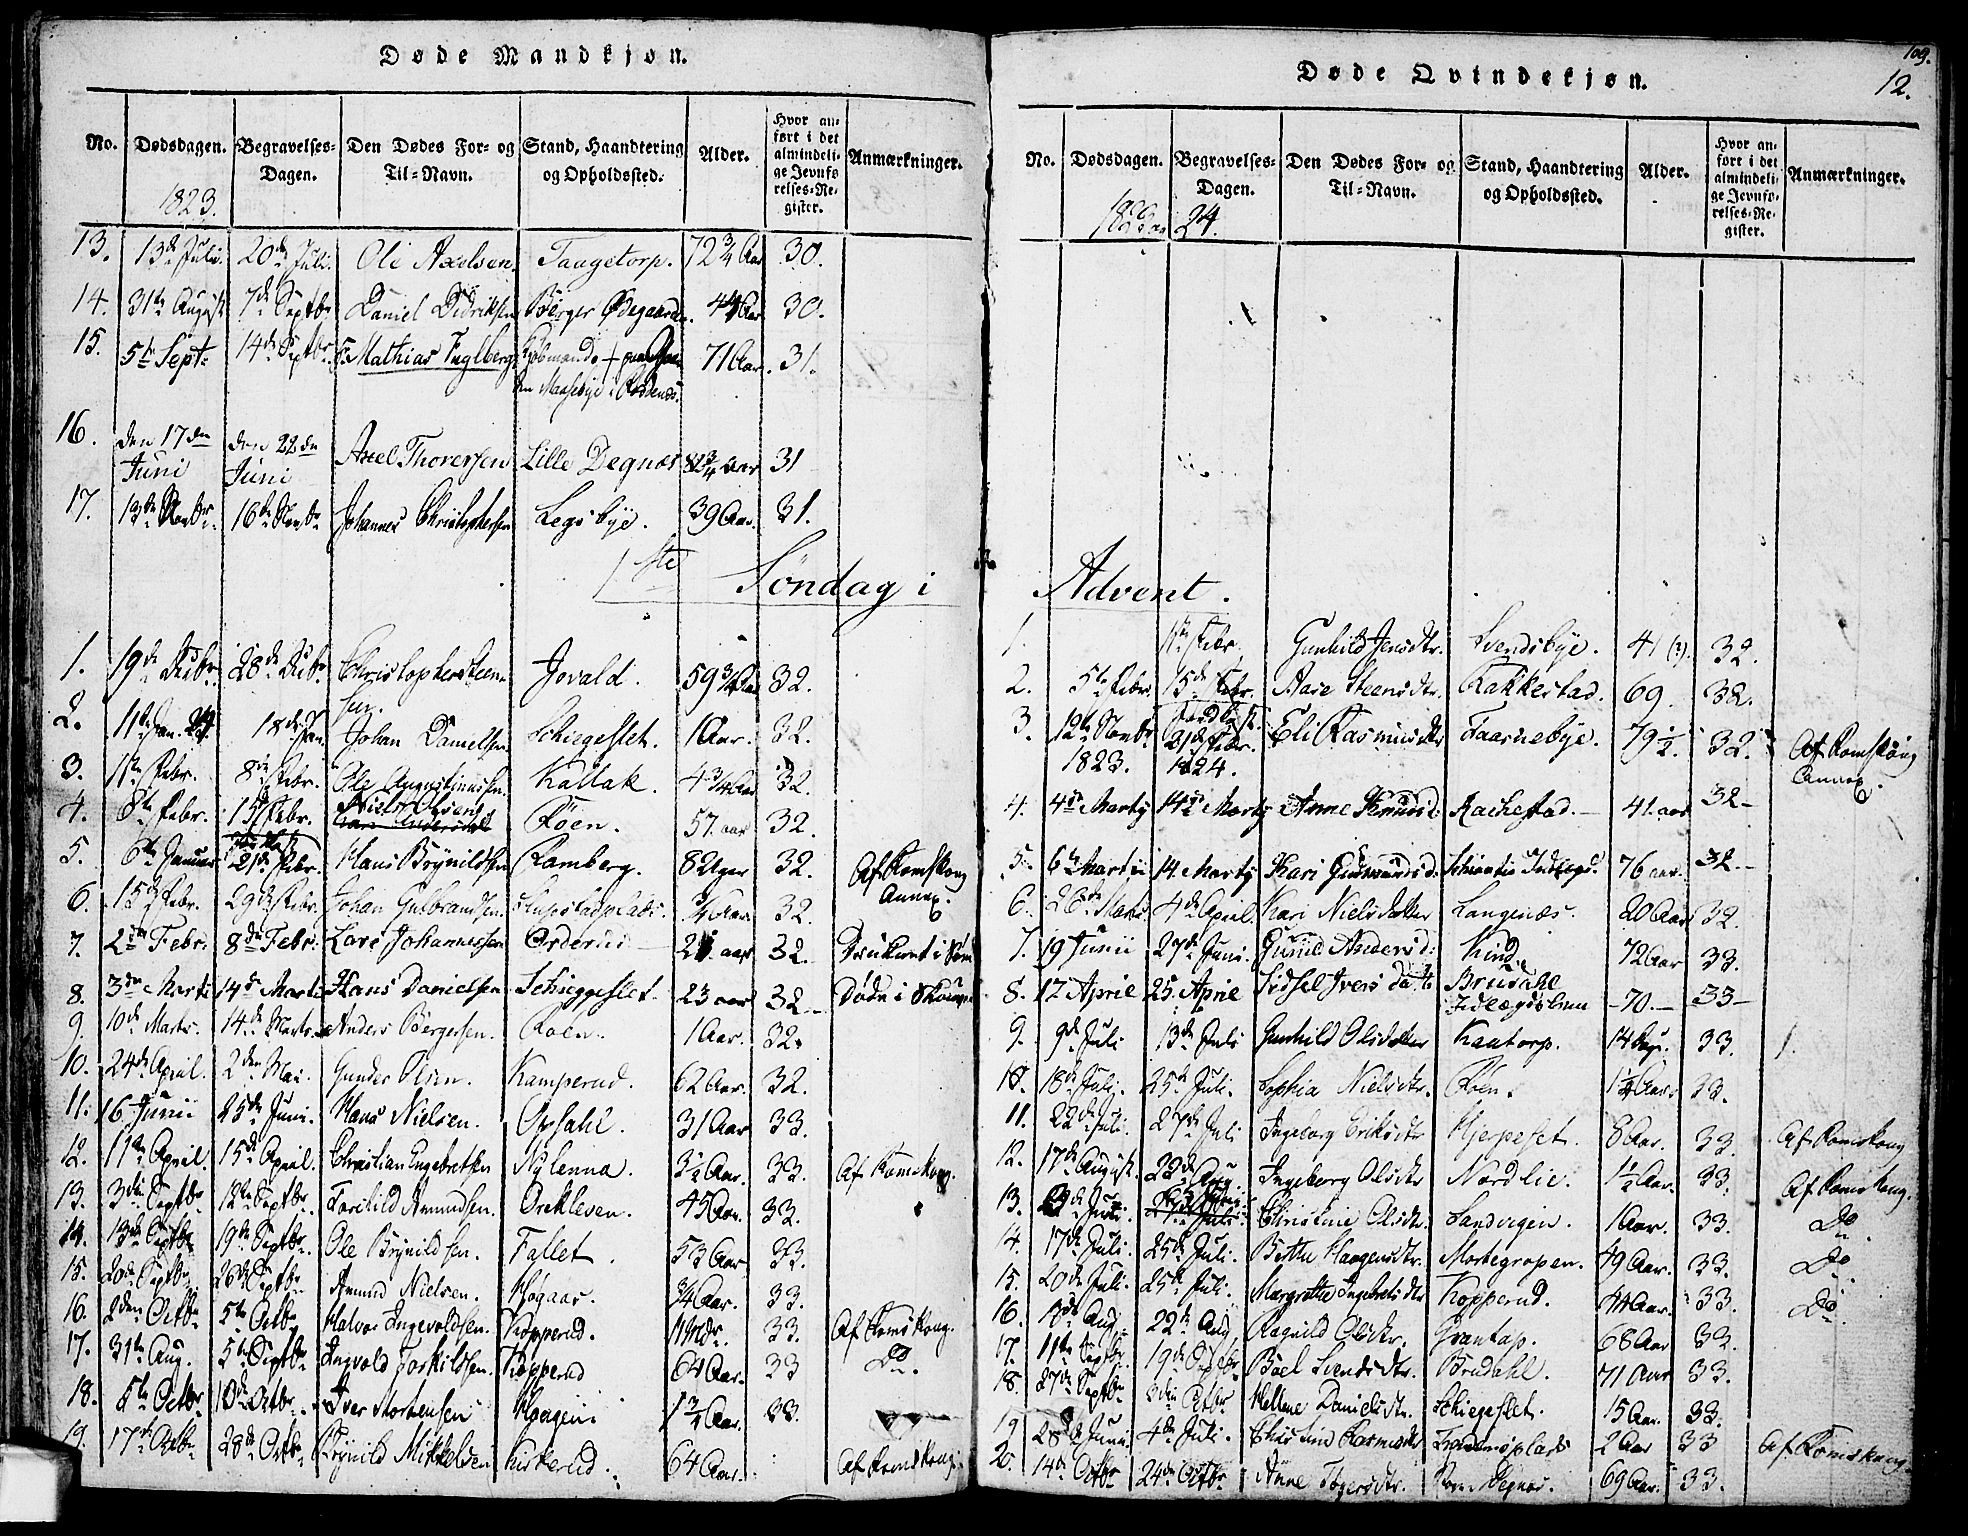 Døde Mandkjøn.
No. Dødsdagen. Begravelses-Dagen. Den Dødes For- og Til-Navn. Stand, Haandtering og Opholdssted. Alder. Hvor anført i det almindelige Jevnførelses-Register. Anmærkninger.
1823.
13. 13de Juli. 20de Juli. Ole Axelsen. Taugetorp. 72 3/4 Aar 30.
14. 31te August 7de Septbr Daniel Didriksen Børger Ødegaarden. 44 Aar 30.
15. 5te Sept: 14de Septbr. Mathias Fuglberg Kjøbmand
Maasebye i Rødenes. 71 Aar. 31.
16. den 17den Juni den 22den Juni Axel Thoresen Lille Degnæs 3/4 aar 31
17. 13de Novbr. 16de Novbr. Johannes Christophersen Legsbye. 39 Aar. 31.
1ste Søndag i
1. 19de Decbr. 28de Decbr. Christopher Steensen. Jovald. 59 3/4 Aar 32.
2. 11te Jan. 24 18de Jan. Johan Danielsen Schiegeslet. 1 Aar. 32.
3. 1ste Febr. 8de Febr. Ole Augustinussen. Kallak. 4 3/4 Aar 32.
4. 8de Febr. 15de Febr. Niels Olsen Røen. 57. aar 32.
5. 6te Januar 21de Febr. Hans Brynildsen Ramberg. 8 Uger 32. Af Romskoug Annex.
6. 15de Febr. 29de Febr. Johan Gulbrandsen. Slupstadplads. 3/4 Aar. 32.
7. 2den Febr. 8de Febr. Lars Johannessen Ørderud 2 aar 32. Druknet i
8. 3den Marti 14de Marti Hans Danielsen Schieggeslet. 23 aar 32. Døde i
9. 10de Marts. 14de Marts. Anders Børgersen. Roen. 1 Aar. 32.
10. 24de April. 2den Mai. Gunder Olsen. Kamperud. 62 Aar. 32.
11. 16 Junii 25de Juni. Hans Nielsen. Opsahl. 31 Aar 33.
12. 11te April. 15de April. Christian Engebretsen Nylenna. 3 1/2 Aar. 33. Af Romskoug.
13. 3die Septbr 12te Septbr. Torchild Amundsen. Oreklesen. 45 Aar. 33.
14. 13de Septbr 19de Septbr. Ole Brynildsen. Fallet. 53 Aar. 33.
15. 20de Septbr. 26de Septbr Amund Nielsen. Høgaas. 3/4 Aar. 33.
16. 2den Octbr 5te Octbr Halvor Ingevoldsen. Kopperud. 11 Mdr. 33. Af Romskoug.
17. 31te Aug. 5te Septbr Ingvold Torkildsen. Kopperud 64 Aar. 33 Do.
18. 5te Octbr 10de Octbr. Iver Mortensen 1 3/4 Aar. 33.
19. 17de Octbr 28de Octbr. Brynild Mikkelsen Kirkerud. 64 Aar. Af Romskoug.
109.
12.
Døde Qvindekjøn.
No. Dødsdagen. Begravelses-Dagen. Den Dødes For- og Til-Navn. Stand, Haandtering og Opholdssted. Alder. Hvor anført i det almindelige Jevnførelses-Register. Anmærkninger.
24.
Advent.
1. 1ste Febr. Gunhild Jensdtr. Svendsbye. 41 (?). 32.
2. 5te Febr. 15de Febr. Aase Steensdtr. Rakkestad. 69. 32.
3. 12te Novbr 1823. 21de Febr. 1824. Eli Rasmusdtr Taarnebye. 79 1/2. 32. Af Romskoug Annex.
4. 4de Marty 14de Marty Anne Knudsd: Rachestad. 41. aar 32
5. 6te Martii 14 Marty Kari Gudmundsd: 76 aar. 32.
6. 26de Marts 4de April. Kari Nielsdatter Langenæs. 20 Aar 32.
7. 19 Junii 27de Juni. Gunild Andersd: Kind. 72 Aar 33.
8. 12 April 25. April Sidsel Ivers dat. Brudahl 70. 33
9. 9de Juli 13de Juli Gunhild Olsdatter Kaatorp. 14 Dage. 33. 1.
10. 18de Juli. 25de Juli. Sophia Nielsdtr. Roen. 1 1/4 Aar. 33.
11. 22de Juli. 27de Juli Ingeborg Eriksdtr Hjerpeset. 8 Aar. 33. Af Romskoug
12. 17de August. 22de Aug. Ingeborg Olsdtr Nordlie. 1 1/2 Aar. 33. Af Romskoug.
13. Juli. Christine Olsdtr. Sandvigen. 1 Aar. 33. Do
14. 17de Juli. 25de Juli. Berthe Haagensdtr. Mortegropen. 49 Aar. 33. Do.
15. 20de Juli. 25de Juli. Margrethe Ingebretsdtr Kopperud. 44 Aar. 33. Do.
16. Aug. 22de Aug. Ragnild Olsdtr. Grantop. 68 Aar 33.
17. 11te Septbr. 19de Septbr Boel Svendsdtr. Brudahl. 71 Aar 33.
18. 27de Septbr 3die Octbr Hellene Danielsdtr. Schiegeslet. 15 Aar. 33.
19 28de Juni 4de Juli. Christine Rasmusdtr 2 Aar 33 Af Romskoug
20. 14de Octbr 24de Octbr Anne Tygersdtr. Degnæs. 69 Aar. 33.